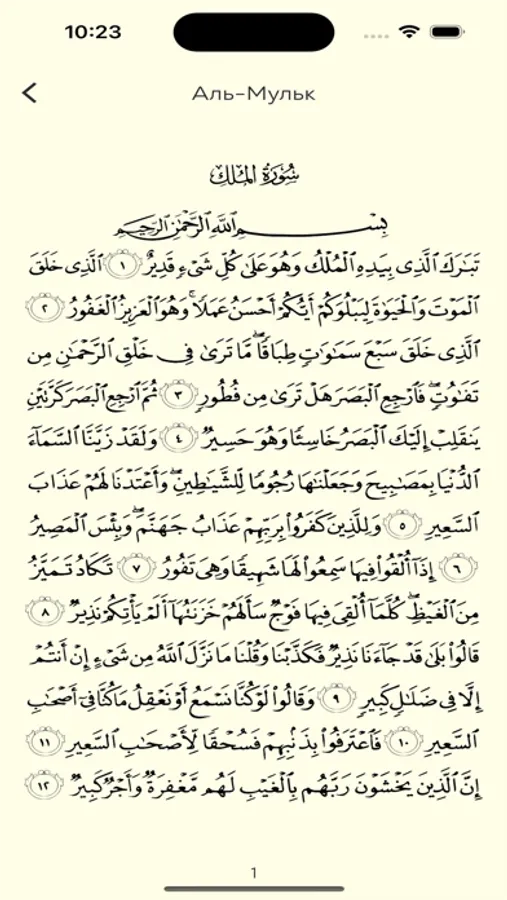 10:23
Аль-Мульк
سُورَةُ المُلك
بِسْمِ اللَّهِ الرَّحْمَٰنِ الرَّحِيمِ
تَبَارَكَ الَّذِي بِيَدِهِ الْمُلْكُ وَهُوَ عَلَىٰ كُلِّ شَيْءٍ قَدِيرٌ ١ الَّذِي خَلَقَ
الْمَوْتَ وَالْحَيَوٰةَ لِيَبْلُوَكُمْ أَيُّكُمْ أَحْسَنُ عَمَلًا ۚ وَهُوَ الْعَزِيزُ الْغَفُورُ ٢
الَّذِي خَلَقَ سَبْعَ سَمَٰوَٰتٍ طِبَاقًا ۖ مَّا تَرَىٰ فِي خَلْقِ الرَّحْمَٰنِ مِن
تَفَٰوُتٍ ۖ فَارْجِعِ الْبَصَرَ هَلْ تَرَىٰ مِن فُطُورٍ ٣ ثُمَّ ارْجِعِ الْبَصَرَ كَرَّتَيْنِ
يَنقَلِبْ إِلَيْكَ الْبَصَرُ خَاسِئًا وَهُوَ حَسِيرٌ ٤ وَلَقَدْ زَيَّنَّا السَّمَاءَ
الدُّنْيَا بِمَصَٰبِيحَ وَجَعَلْنَٰهَا رُجُومًا لِّلشَّيَٰطِينِ ۖ وَأَعْتَدْنَا لَهُمْ عَذَابَ
السَّعِيرِ ٥ وَلِلَّذِينَ كَفَرُوا۟ بِرَبِّهِمْ عَذَابُ جَهَنَّمَ ۖ وَبِئْسَ الْمَصِيرُ
٦ إِذَا أُلْقُوا۟ فِيهَا سَمِعُوا۟ لَهَا شَهِيقًا وَهِيَ تَفُورُ ٧ تَكَادُ تَمَيَّزُ
مِنَ الْغَيْظِ ۖ كُلَّمَا أُلْقِيَ فِيهَا فَوْجٌ سَأَلَهُمْ خَزَنَتُهَا أَلَمْ يَأْتِكُمْ نَذِيرٌ ٨
قَالُوا۟ بَلَىٰ قَدْ جَاءَنَا نَذِيرٌ فَكَذَّبْنَا وَقُلْنَا مَا نَزَّلَ اللَّهُ مِن شَيْءٍ إِنْ أَنتُمْ
إِلَّا فِي ضَلَٰلٍ كَبِيرٍ ٩ وَقَالُوا۟ لَوْ كُنَّا نَسْمَعُ أَوْ نَعْقِلُ مَا كُنَّا فِي أَصْحَٰبِ
السَّعِيرِ ١٠ فَاعْتَرَفُوا۟ بِذَنۢبِهِمْ فَسُحْقًا لِّأَصْحَٰبِ السَّعِيرِ ١١
إِنَّ الَّذِينَ يَخْشَوْنَ رَبَّهُم بِالْغَيْبِ لَهُم مَّغْفِرَةٌ وَأَجْرٌ كَبِيرٌ ١٢
1